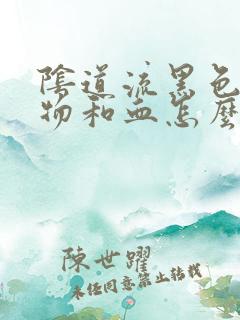 陰道流黑色
物和血怎麼
陳世躍
未經同意禁止轉載